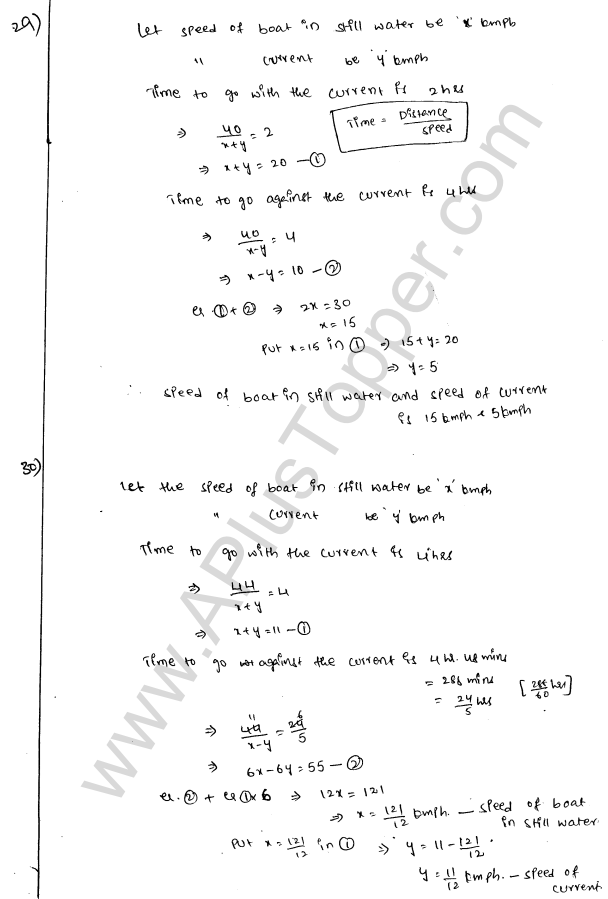 29)
Let speed of boat in still water be 'x' kmph
" current be 'y' kmph
Time to go with the current is 2hrs
⇒ 40/(x+y) = 2
Time = Distance/speed
⇒ x+y = 20 — ①
Time to go against the current is 4hrs
⇒ 40/(x-y) = 4
⇒ x-y = 10 — ②
er. ① + ② ⇒ 2x = 30
x = 15
Put x=15 in ① ⇒ 15+y = 20
⇒ y = 5
∴ speed of boat in still water and speed of current
is 15 kmph & 5 kmph
30)
Let the speed of boat in still water be 'x' kmph
" current be 'y' kmph
Time to go with the current is 4hrs
⇒ 44/(x+y) = 4
⇒ x+y = 11 — ①
Time to go against the current is 4 hr. 48 mins
= 288 mins
= 24/5 hrs [288/60 hrs]
⇒ 44/(x-y) = 24/5
11 6
⇒ 6x-6y = 55 — ②
er. ② + er ① x 6 ⇒ 12x = 121
⇒ x = 121/12 kmph. — speed of boat
in still water
Put x = 121/12 in ① ⇒ y = 11 - 121/12
y = 11/12 kmph. — speed of
current
www.APlusTopper.com